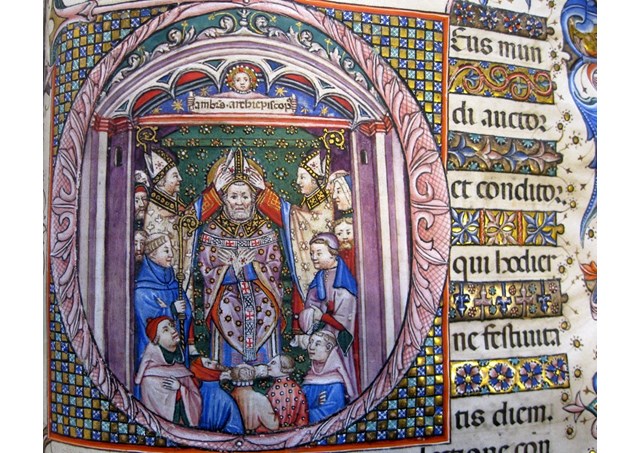 ambs·archiepiscop
Eus mun
di auctor
et conditor
qui hodier
ne festivita
tis diem.